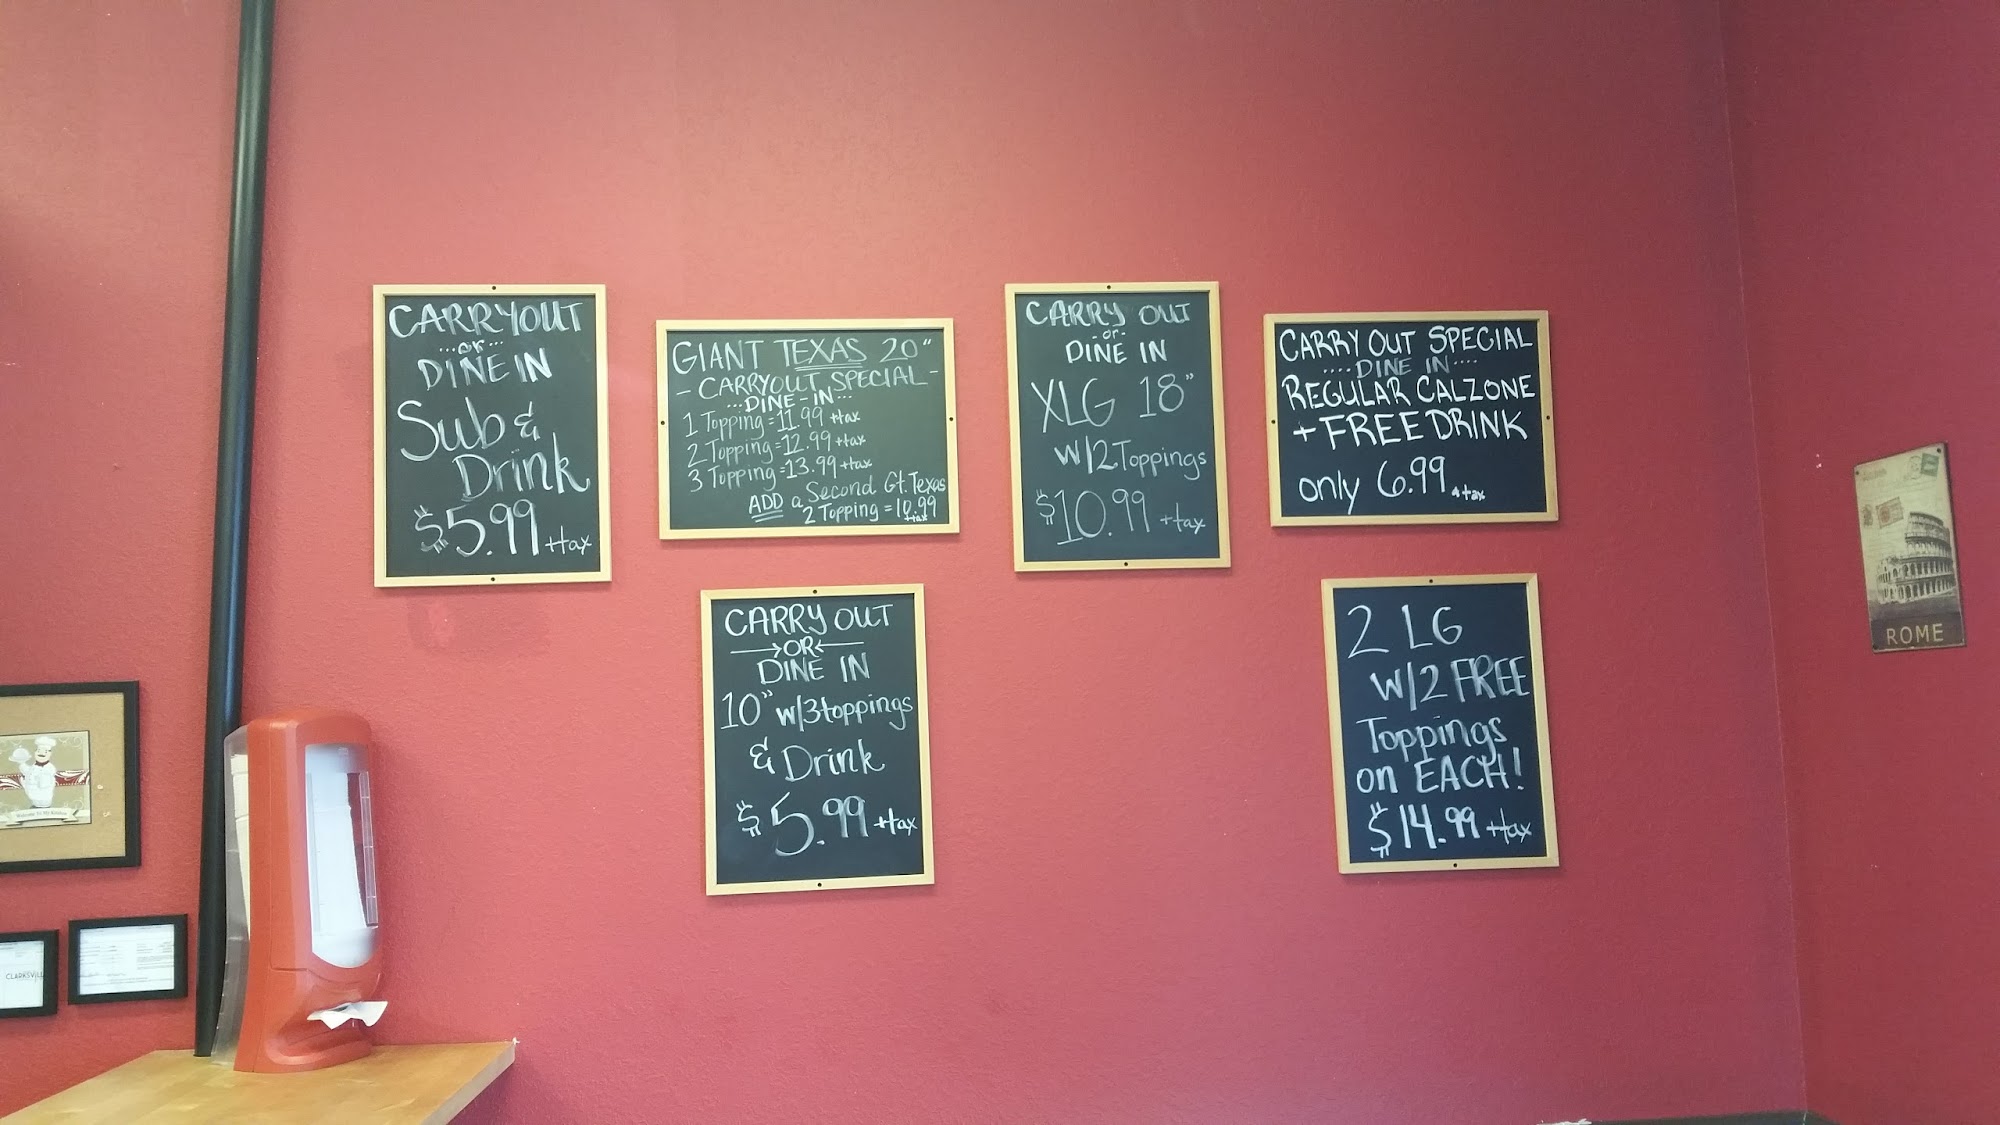 CARRYOUT
or
DINE IN
Sub &
Drink
$5.99 +tax
GIANT TEXAS 20"
- CARRYOUT SPECIAL -
... DINE-IN ...
1 Topping = 11.99 +tax
2 Topping = 12.99 +tax
3 Topping = 13.99 +tax
ADD a Second Gt. Texas
2 Topping = 10.99
+tax
CARRY OUT
-or-
DINE IN
XLG 18"
W/2 Toppings
$10.99 +tax
CARRY OUT SPECIAL
.... DINE IN ....
REGULAR CALZONE
+ FREE DRINK
only 6.99 +tax
CARRY OUT
OR
DINE IN
10" w/3 toppings
& Drink
$5.99 +tax
2 LG
W/2 FREE
Toppings
on EACH!
$14.99 +tax
ROME